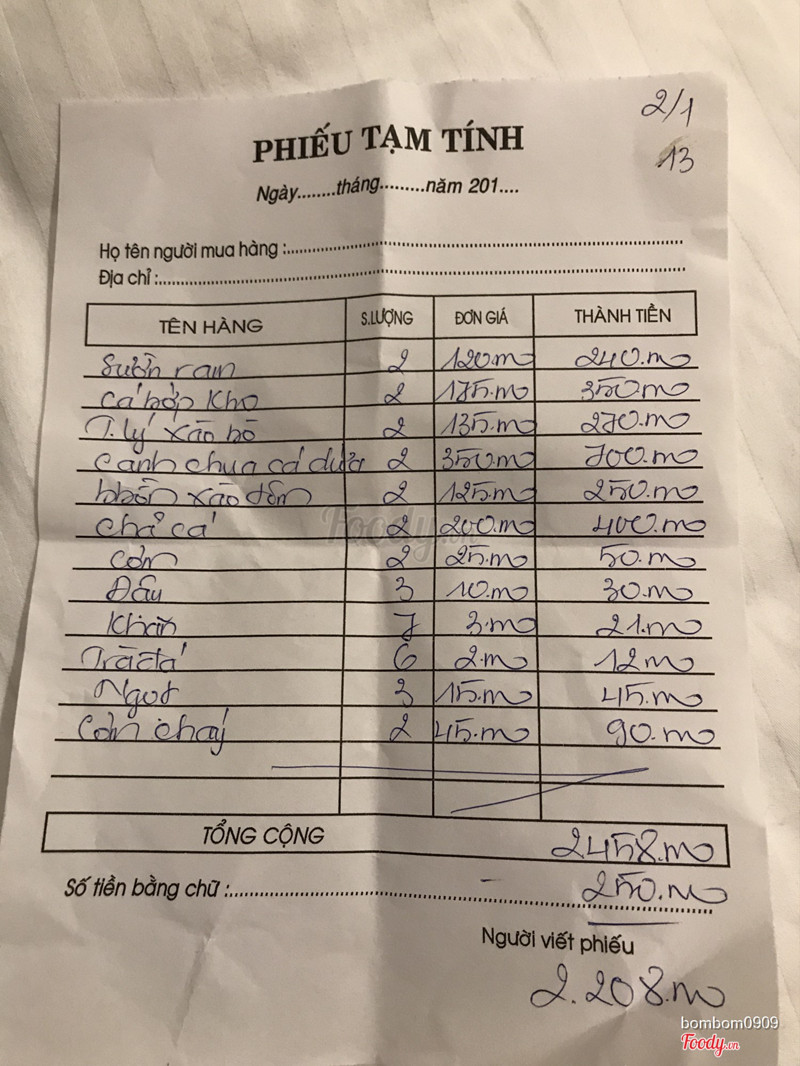 2/1
13
PHIẾU TẠM TÍNH
Ngày........tháng.........năm 201....
Họ tên người mua hàng :
Địa chỉ :
TÊN HÀNG S.LƯỢNG ĐƠN GIÁ THÀNH TIỀN
Sườn ram 2 120.m 240.m
Cá bớp kho 2 175.m 350.m
T.lý xào bò 2 135.m 270.m
Canh chua cá dứa 2 350.m 700.m
xào 2 125.m 250.m
Chả cá 2 200.m 400.m
Cơm 2 25.m 50.m
Đậu 3 10.m 30.m
Khăn 7 3.m 21.m
Trà đá 6 2.m 12m
Ngọt 3 15.m 45.m
Cơm cháy 2 45.m 90.m
TỔNG CỘNG 2458.m
Số tiền bằng chữ : - 250.m
Người viết phiếu
2.208.m
Foody.vn
bombom0909
Foody.vn